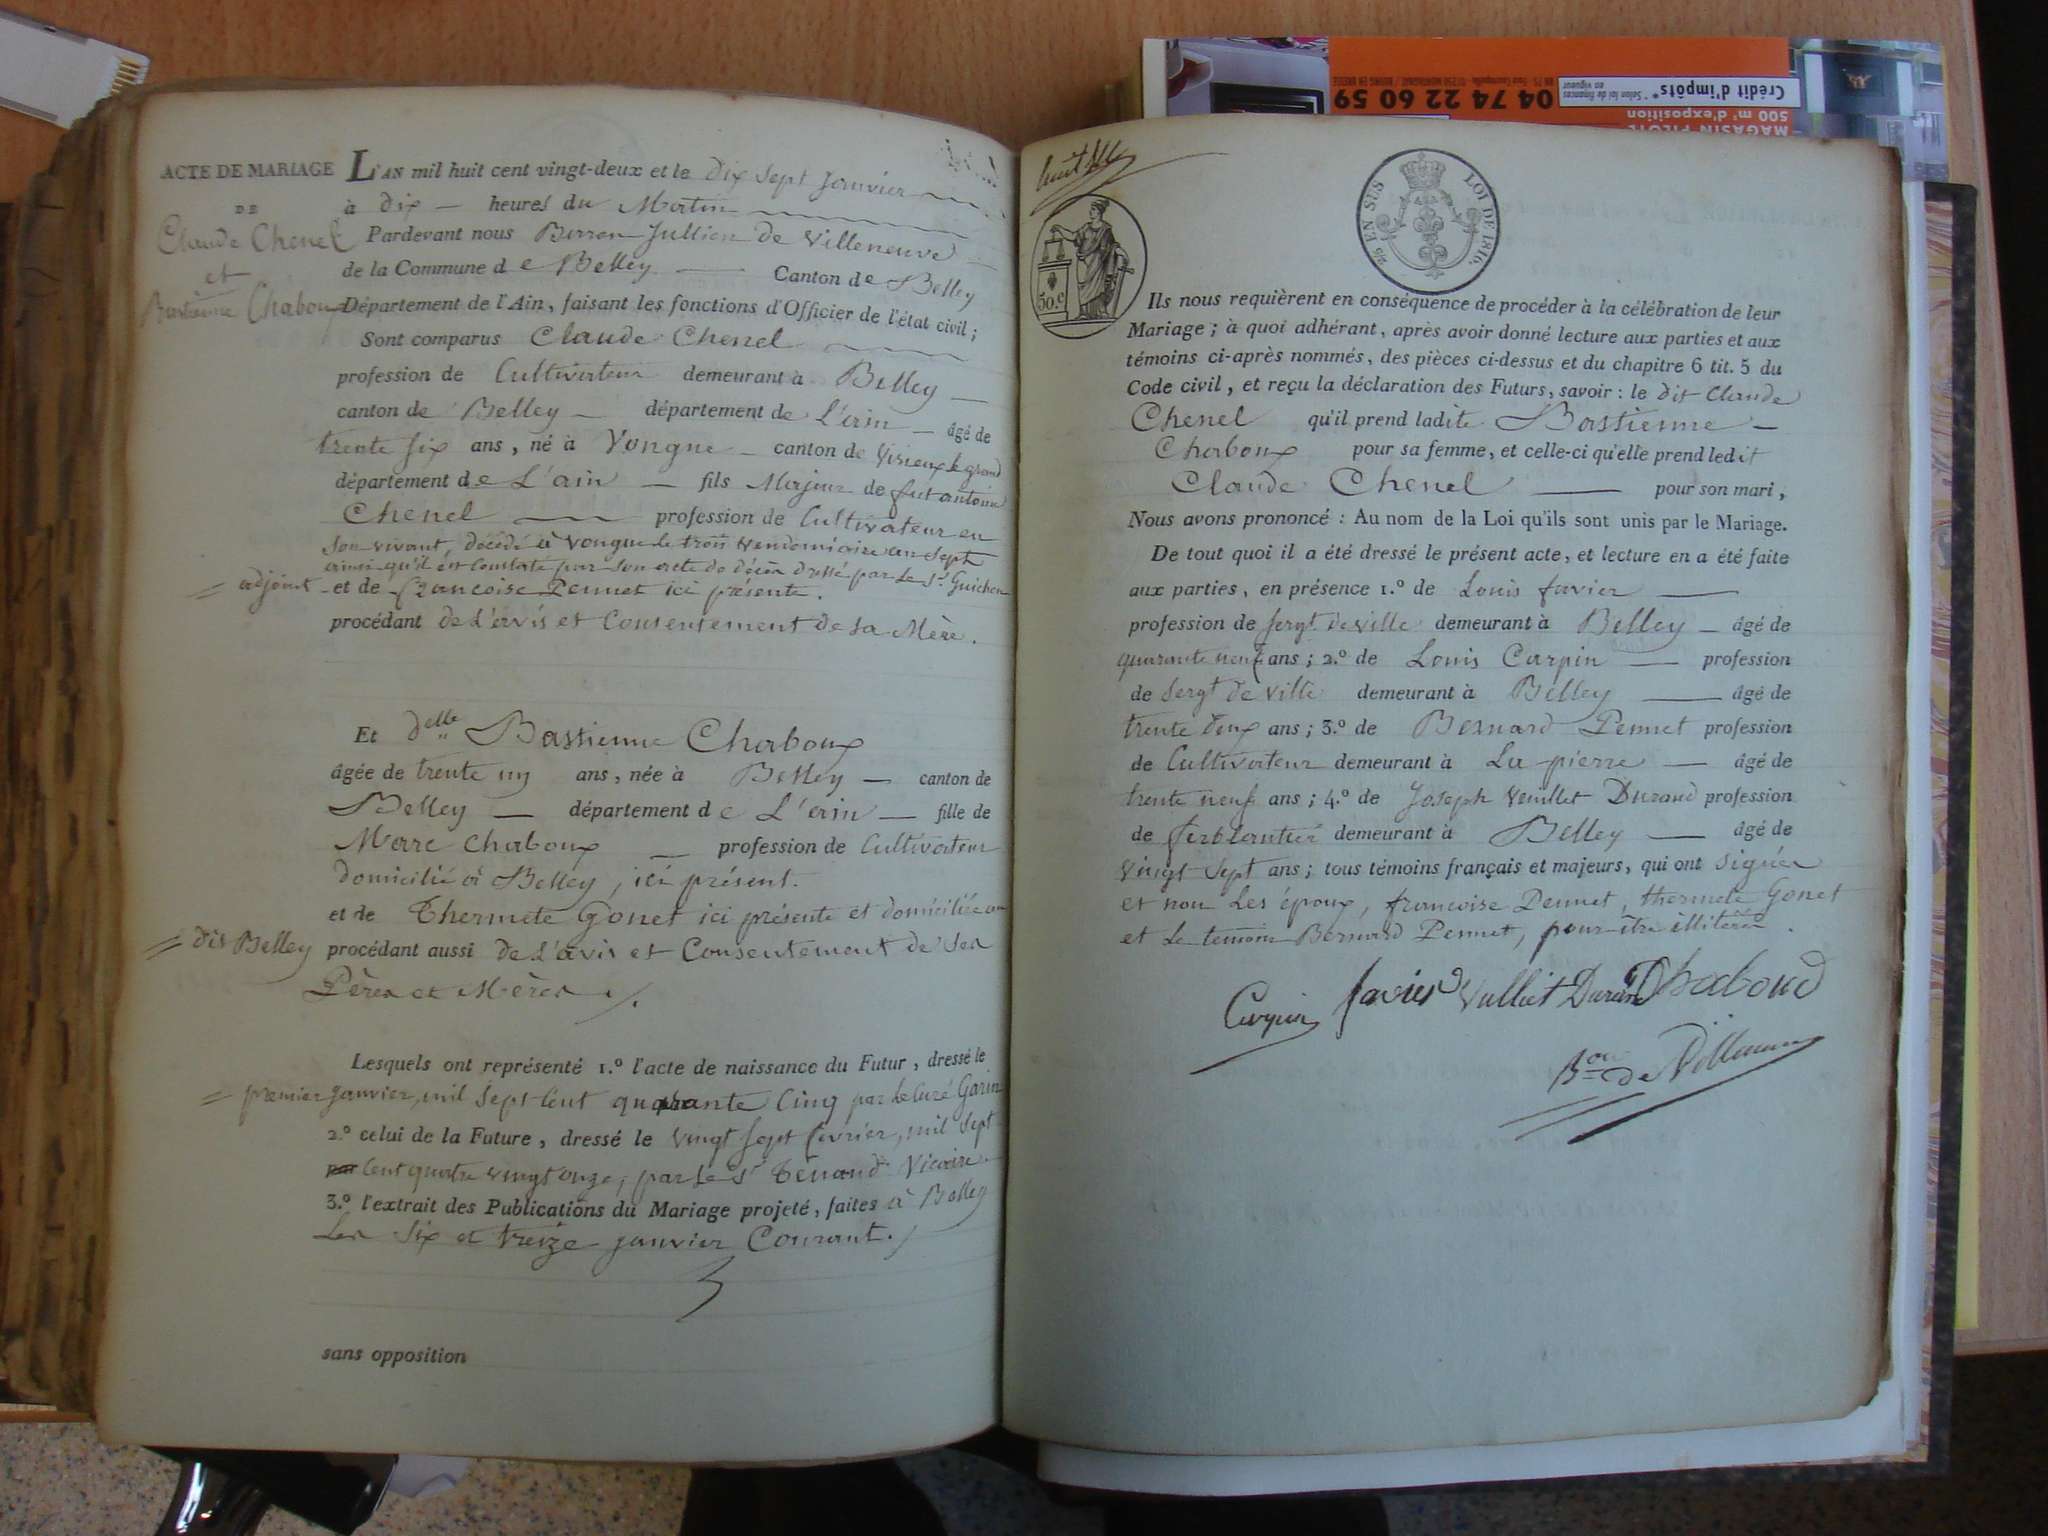 ACTE DE MARIAGE
DE
Claude Chenel
et
Bastienne Chaboux
L'AN mil huit cent vingt-deux et le dix sept janvier
à dix heures du Matin
Pardevant nous Baron Jullien de Villeneuve
de la Commune de Belley Canton de Belley
Département de l'Ain, faisant les fonctions d'Officier de l'état civil;
Sont comparus Claude Chenel
profession de Cultivateur demeurant à Belley
canton de Belley département de L'ain âgé de
trente six ans, né à Vongne canton de Virieux le grand
département de L'ain fils Majeur de feu antoine
Chenel profession de Cultivateur en
son vivant, décédé à Vongne le trois vendemiaire an sept
ainsi qu'il en Conste par son acte de décès dressé par le Sr. Guichon
= adjoint - et de francoise Pennet ici présente.
procédant de L'avis et Consentement de sa Mère.
Et delle Bastienne Chaboux
âgée de trente un ans, née à Belley canton de
Belley département de L'ain fille de
Marc Chaboux profession de Cultivateur
domicilié à Belley, ici présent.
et de Thermete Gonet ici présente et domiciliée au
= dit Belley procédant aussi de L'avis et Consentement de ses
Pères et Mères /.
Lesquels ont représenté 1.º l'acte de naissance du Futur, dressé le
= premier janvier, mil sept Cent quarante Cinq par le Curé Garin
2.º celui de la Future, dressé le vingt sept février, mil sept
par Cent quatre vingt onze, par le Sr Tenand Vicaire
3.º l'extrait des Publications du Mariage projeté, faites à Belley
Les Six et treize janvier Courant. /
sans opposition
50.c
2/5 EN SUS LOI DE 1816.
Ils nous requièrent en conséquence de procéder à la célébration de leur
Mariage; à quoi adhérant, après avoir donné lecture aux parties et aux
témoins ci-après nommés, des pièces ci-dessus et du chapitre 6 tit. 5 du
Code civil, et reçu la déclaration des Futurs, savoir: le dit Claude
Chenel qu'il prend ladite Bastienne
Chaboux pour sa femme, et celle-ci qu'elle prend ledit
Claude Chenel pour son mari,
Nous avons prononcé: Au nom de la Loi qu'ils sont unis par le Mariage.
De tout quoi il a été dressé le présent acte, et lecture en a été faite
aux parties, en présence 1.º de Louis favier
profession de sergt de ville demeurant à Belley âgé de
quarante neuf ans; 2.º de Louis Carpin profession
de sergt de ville demeurant à Belley âgé de
trente deux ans; 3.º de Bernard Pennet profession
de Cultivateur demeurant à La pierre âgé de
trente neuf ans; 4.º de Joseph Veuillet Durand profession
de ferblantier demeurant à Belley âgé de
vingt sept ans; tous témoins français et majeurs, qui ont signés
et non Les époux, francoise Pennet, thermete Gonet
et Le temoin Bernard Pennet, pour être illiterés.
Carpin favier Vulliet Durand Chaboud
Bon de Villeneuve
04 74 22 60 59
Crédit d'impôts*
* Selon loi de finances
en vigueur
500 m² d'exposition
MAGASIN PILOTE